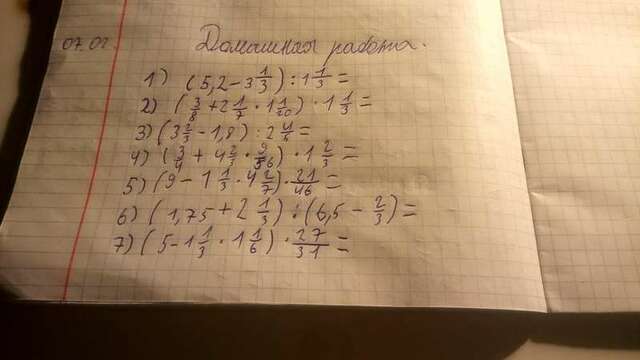 07.02. Домашняя работа.
1) (5,2-3 1/3) : 1 1/3 =
2) (3/8 + 2 1/7 · 1 1/20) · 1 1/3 =
3) (3 2/3 - 1,8) : 2 4/5 =
4) (3/4 + 4 2/3 · 9/56) · 1 2/3 =
5) (9 - 1 1/3 · 4 2/7) · 21/46 =
6) (1,75 + 2 1/3) : (6,5 - 2/3) =
7) (5 - 1 1/3 · 1 1/6) · 27/31 =